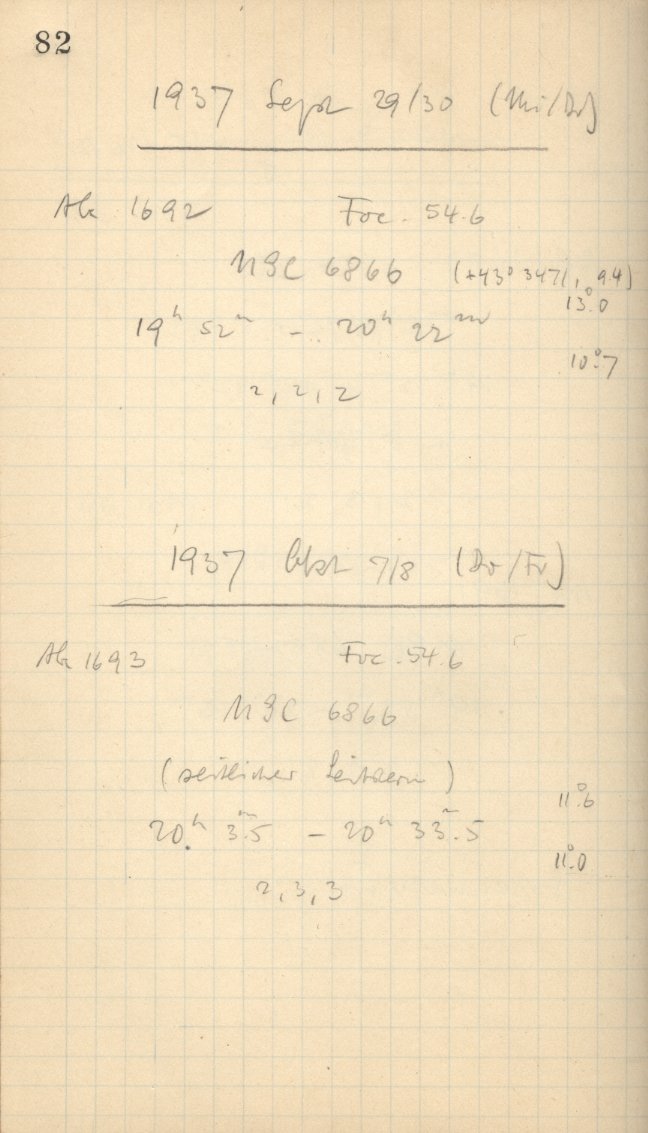 82
1937 Sept 29/30 (Mi/Do)
1692 Foc. 54.6
NGC 6866 (+43° 3471, 9.4)
13°.0
19ʰ 52ᵐ – 20ʰ 22ᵐ
10°.7
2, 2, 2
1937 Okt 7/8 (Do/Fr)
1693 Foc. 54.6
NGC 6866
(seitlicher Leitstern)
11°.6
20ʰ 3ᵐ.5 – 20ʰ 33ᵐ.5
11°.0
2, 3, 3